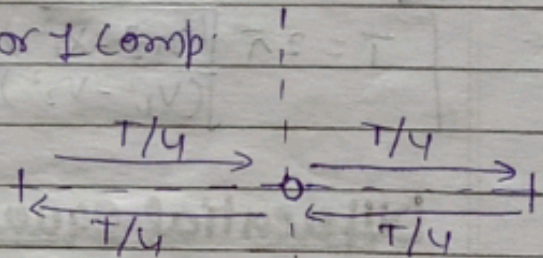 or 1 Comp.
T/4 T/4
T/4 T/4